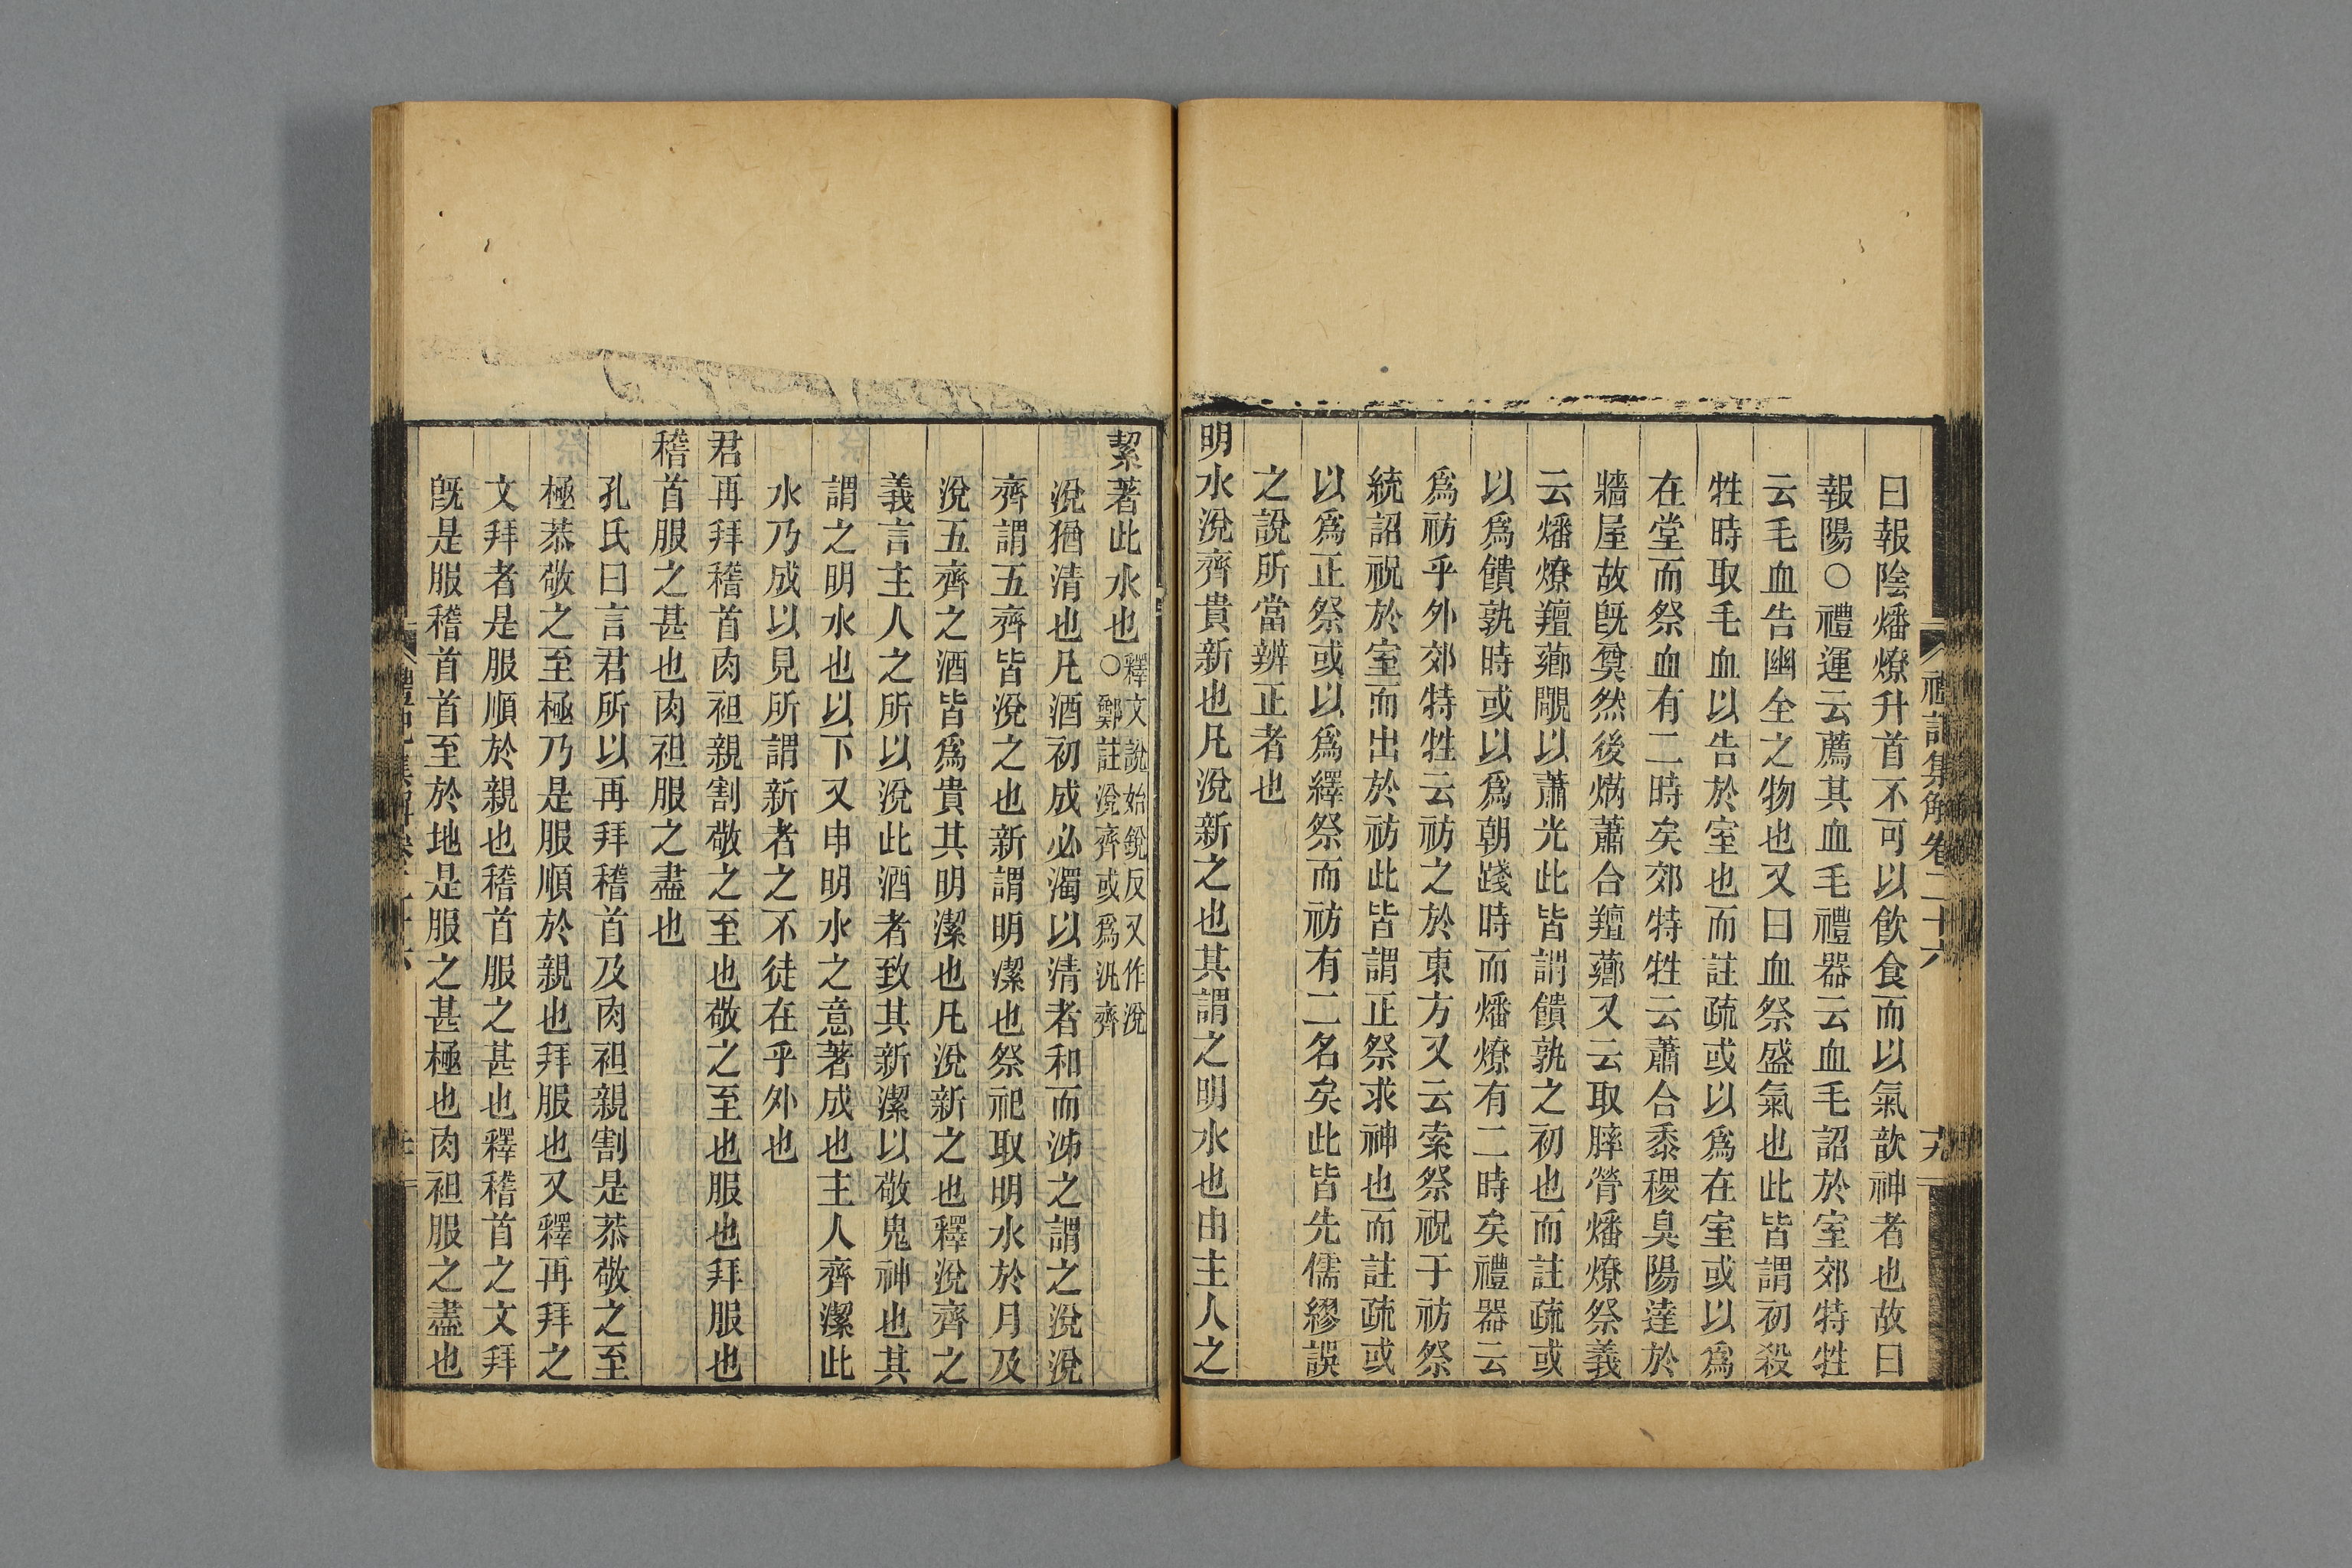 禮記集解卷二十六
曰報陰燔燎升首不可以飲食而以氣歆神者也故曰
報陽○禮運云薦其血毛禮器云血毛詔於室郊特牲
云毛血告幽全之物也又曰血祭盛氣也此皆謂初殺
牲時取毛血以告於室也而註疏或以爲在室或以爲
在堂而祭血有二時矣郊特牲云蕭合黍稷臭陽達於
牆屋故旣奠然後焫蕭合羶薌又云取膟膋燔燎祭義
云燔燎羶薌覸以蕭光此皆謂饋孰之初也而註疏或
以爲饋孰時或以爲朝踐時而燔燎有二時矣禮器云
爲祊乎外郊特牲云祊之於東方又云索祭祝于祊祭
統詔祝於室而出於祊此皆謂正祭求神也而註疏或
以爲正祭或以爲繹祭而祊有二名矣此皆先儒繆誤
之說所當辨正者也
明水涗齊貴新也凡涗新之也其謂之明水也由主人之
絜著此水也○釋文說始銳反又作涗
鄭註涗齊或爲汎齊
涗猶清也凡酒初成必濁以清者和而泲之謂之涗涗
齊謂五齊皆涗之也新謂明潔也祭祀取明水於月及
涗五齊之酒皆爲貴其明潔也凡涗新之也釋涗齊之
義言主人之所以涗此酒者致其新潔以敬鬼神也其
謂之明水也以下又申明水之意著成也主人齊潔此
水乃成以見所謂新者之不徒在乎外也
君再拜稽首肉袒親割敬之至也敬之至也服也拜服也
稽首服之甚也肉袒服之盡也
孔氏曰言君所以再拜稽首及肉袒親割是恭敬之至
極恭敬之至極乃是服順於親也拜服也又釋再拜之
文拜者是服順於親也稽首服之甚也釋稽首之文拜
旣是服稽首首至於地是服之甚極也肉袒服之盡也